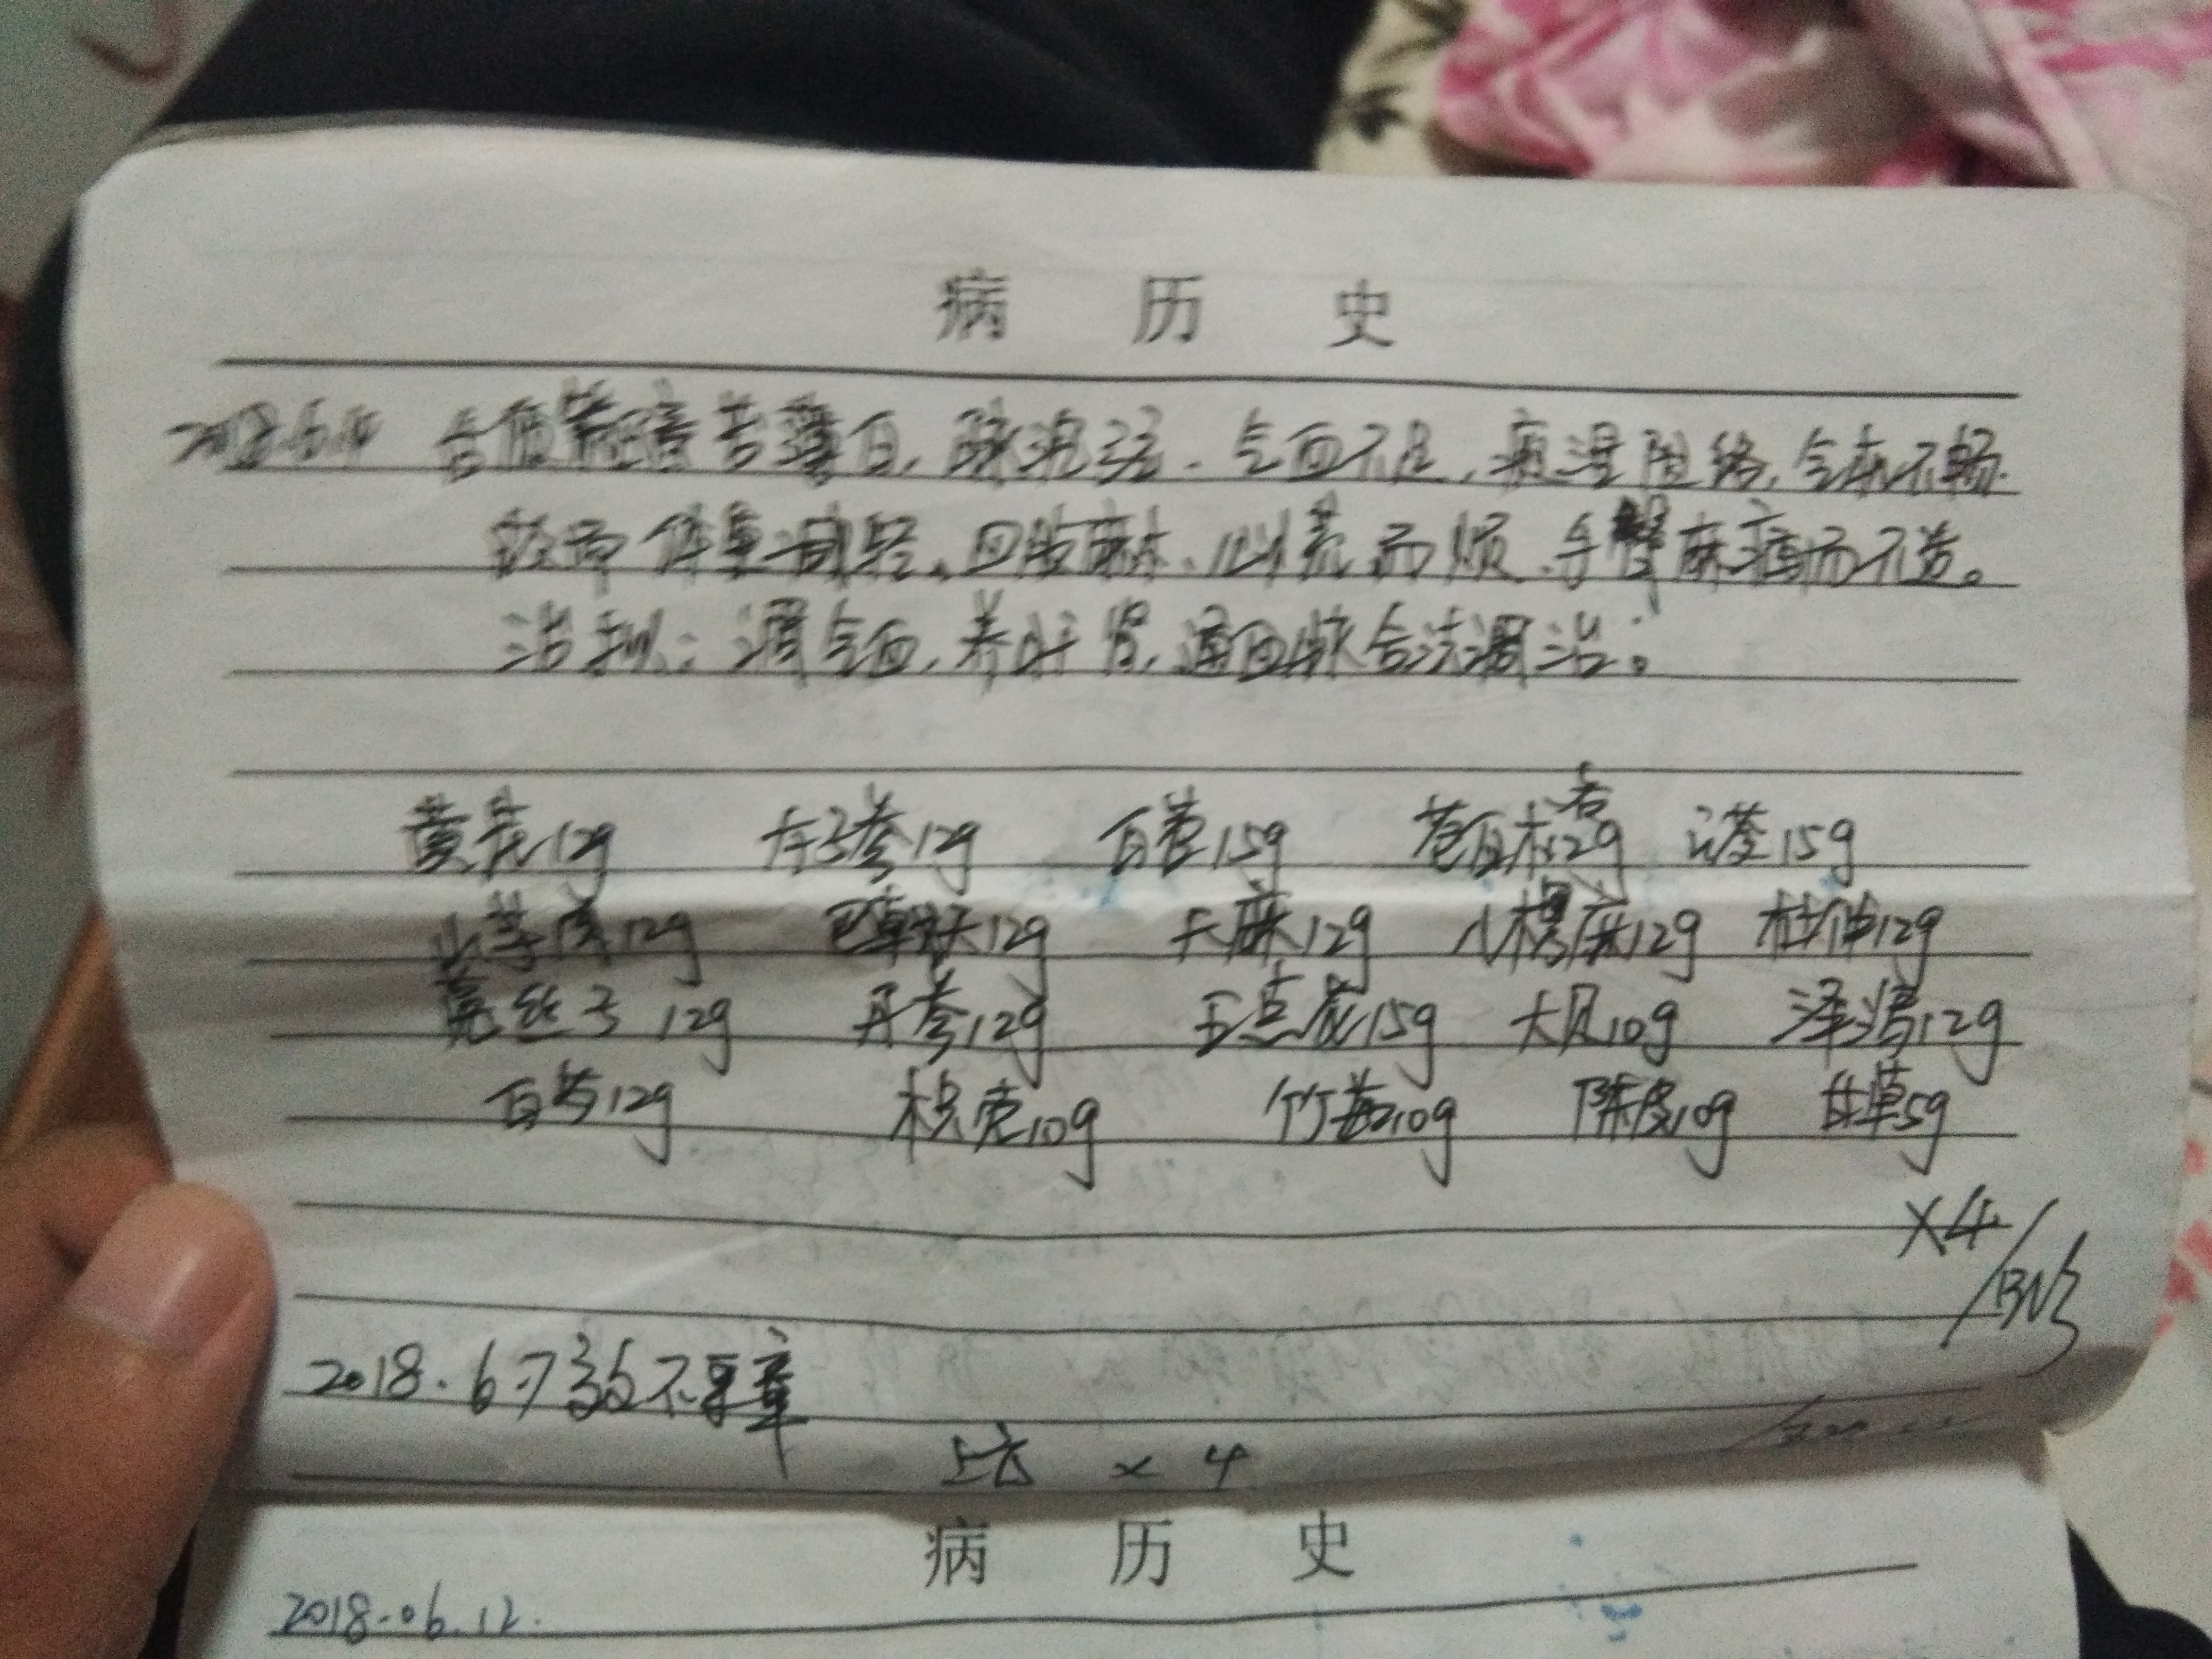 病 历 史
舌质 苔薄白，脉 弦．气血不足，痰湿阻络，气机不畅．
体重减轻．四肢麻木，心慌而烦．手臂麻痛而不 。
治拟：调气血，养肝肾，通血脉合法调治。
黄芪12g 太子参12g 15g 苍白术各12g 茯苓15g
12g 巴戟天12g 天麻12g 12g 杜仲12g
菟丝子12g 丹参12g 15g 10g 泽泻12g
白芍12g 枳壳10g 竹茹10g 陈皮10g 甘草5g
×4
2018.6.7 效不更章
上方 × 4
病 历 史
2018.06.12.